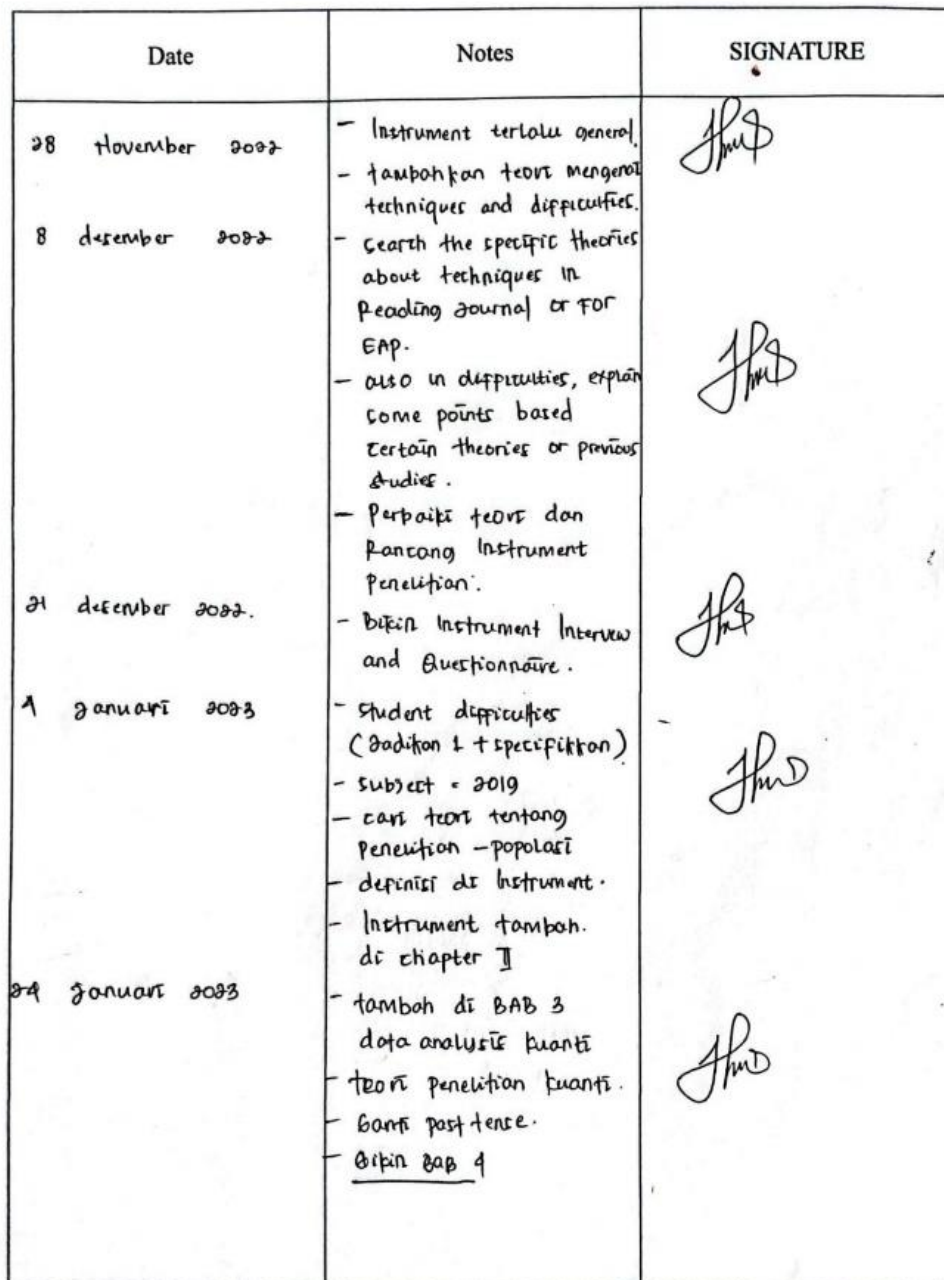 Date Notes SIGNATURE
28 November 2022 - Instrument terlalu general.
- tambahkan teori mengenai
techniques and difficulties.
8 desember 2022 - search the specific theories
about techniques in
Reading Journal or FOR
EAP.
- also in difficulties, explain
some points based
certain theories or previous
studies.
- Perbaiki teori dan
Rancang Instrument
Penelitian.
21 desember 2022. - Bikin Instrument Interview
and Questionnaire.
4 Januari 2023 - Student difficulties
(Jadikan 1 + specifikkan)
- subject = 2019
- cari teori tentang
penelitian - popolasi
- definisi di Instrument.
- Instrument tambah.
di chapter II
24 Januari 2023 - tambah di BAB 3
data analysis kuanti
- teori penelitian kuanti.
- Ganti past tense.
- Bikin BAB 4